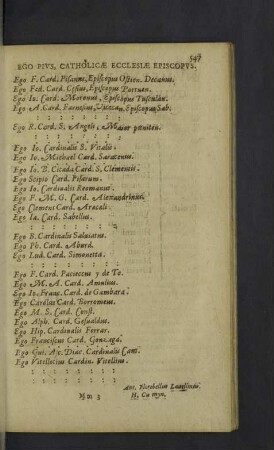 547
EGO PIVS, CATHOLICÆ ECCLESIÆ EPISCOPVS.
Ego F. Card. Pisanus, Episcopus Ostien. Decanus.
Ego Fed. Card. Cesius, Episcopus Portuen.
Ego Io. Card. Moronus, Episcopus Tusculan.
Ego A. Card. Farnesius, Vicecan. Episcopus Sab.
: : : : : : : :
Ego R. Card. S. Angeli, Maior pœniten.
: : : : : : : :
Ego Io. Cardinalis S. Vitalis
Ego Io. Michael Card. Saracenus.
: : : : : : : :
Ego Io. B. Cicada Card. S. Clementis.
Ego Scipio Card. Pisarum.
Ego Io. Cardinalis Reomanus
Ego F. M. G. Card. Alexandrinus.
Ego Clemens Card. Aracœli
Ego Ia. Card. Sabellus.
: : : : : : : :
Ego B. Cardinalis Saluiatus.
Ego Ph. Card. Aburd.
Ego Lud. Card. Simonetta.
: : : : : : : :
Ego F. Card. Paciectus y de To.
Ego M. A. Card. Amulius.
Ego Io. Franc. Card. de Gambara.
Ego Carolus Card. Borromæus.
Ego M. S. Card. Const.
Ego Alph. Card. Gesualdus.
Ego Hip. Cardinalis Ferrar.
Ego Franciscus Card. Gonzaga.
Ego Gui. As. Diac. Cardinalis Cam.
Ego Vitellotius Cardin. Vitellius.
: : : : : : : :
Ant. Florebellus Lauellinus.
Mm 3
H. Cu myn.